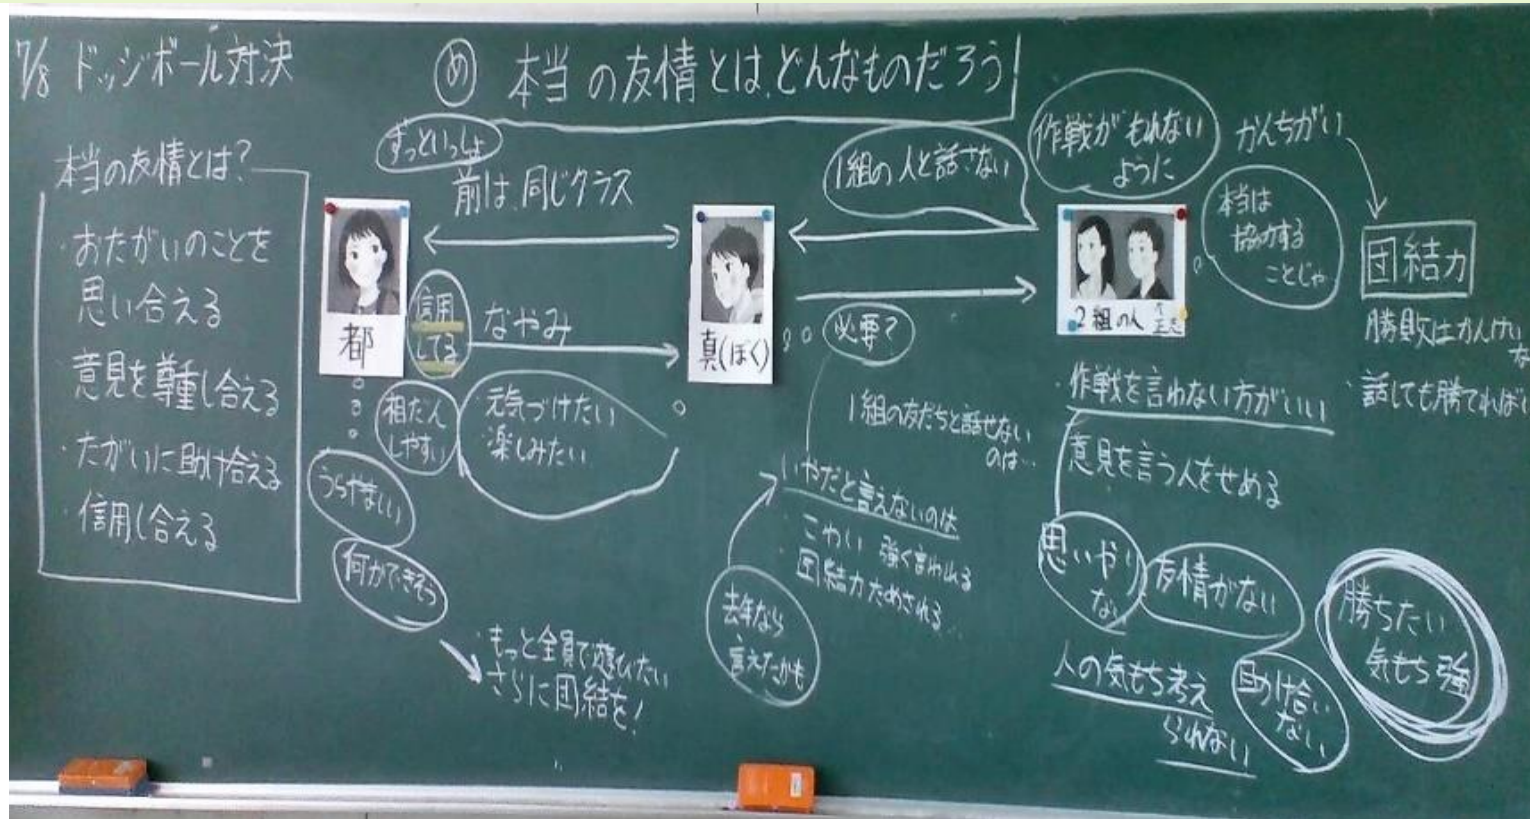 7/8 ドッジボール対決
め 本当の友情とは、どんなものだろう
本当の友情とは?
・おたがいのことを
思い合える
意見を尊重し合える
・たがいに助け合える
・信用し合える
ずっといっしょ
前は、同じクラス
都
信用
してる
なやみ
相だん
しやすい
元気づけたい
楽しみたい
うらやましい
何かできそう
・もっと全員で遊びたい
さらに団結を!
真(ぼく)
必要?
1組の友だちと話せない
のは…
いやだと言えないのは
・こわい 強く言われる
・団結力ためされる…
去年なら
言えたかも
1組の人と話さない
作戦がもれない
ように
かんちがい
2組の人
本当は
協力する
ことじゃ
団結力
勝敗はかんけい
な
・話しても勝てれば
・作戦を言わない方がいい
意見を言う人をせめる
思いやり
ない
友情がない
人の気もち考え
られない
助け合い
ない
勝ちたい
気もち強